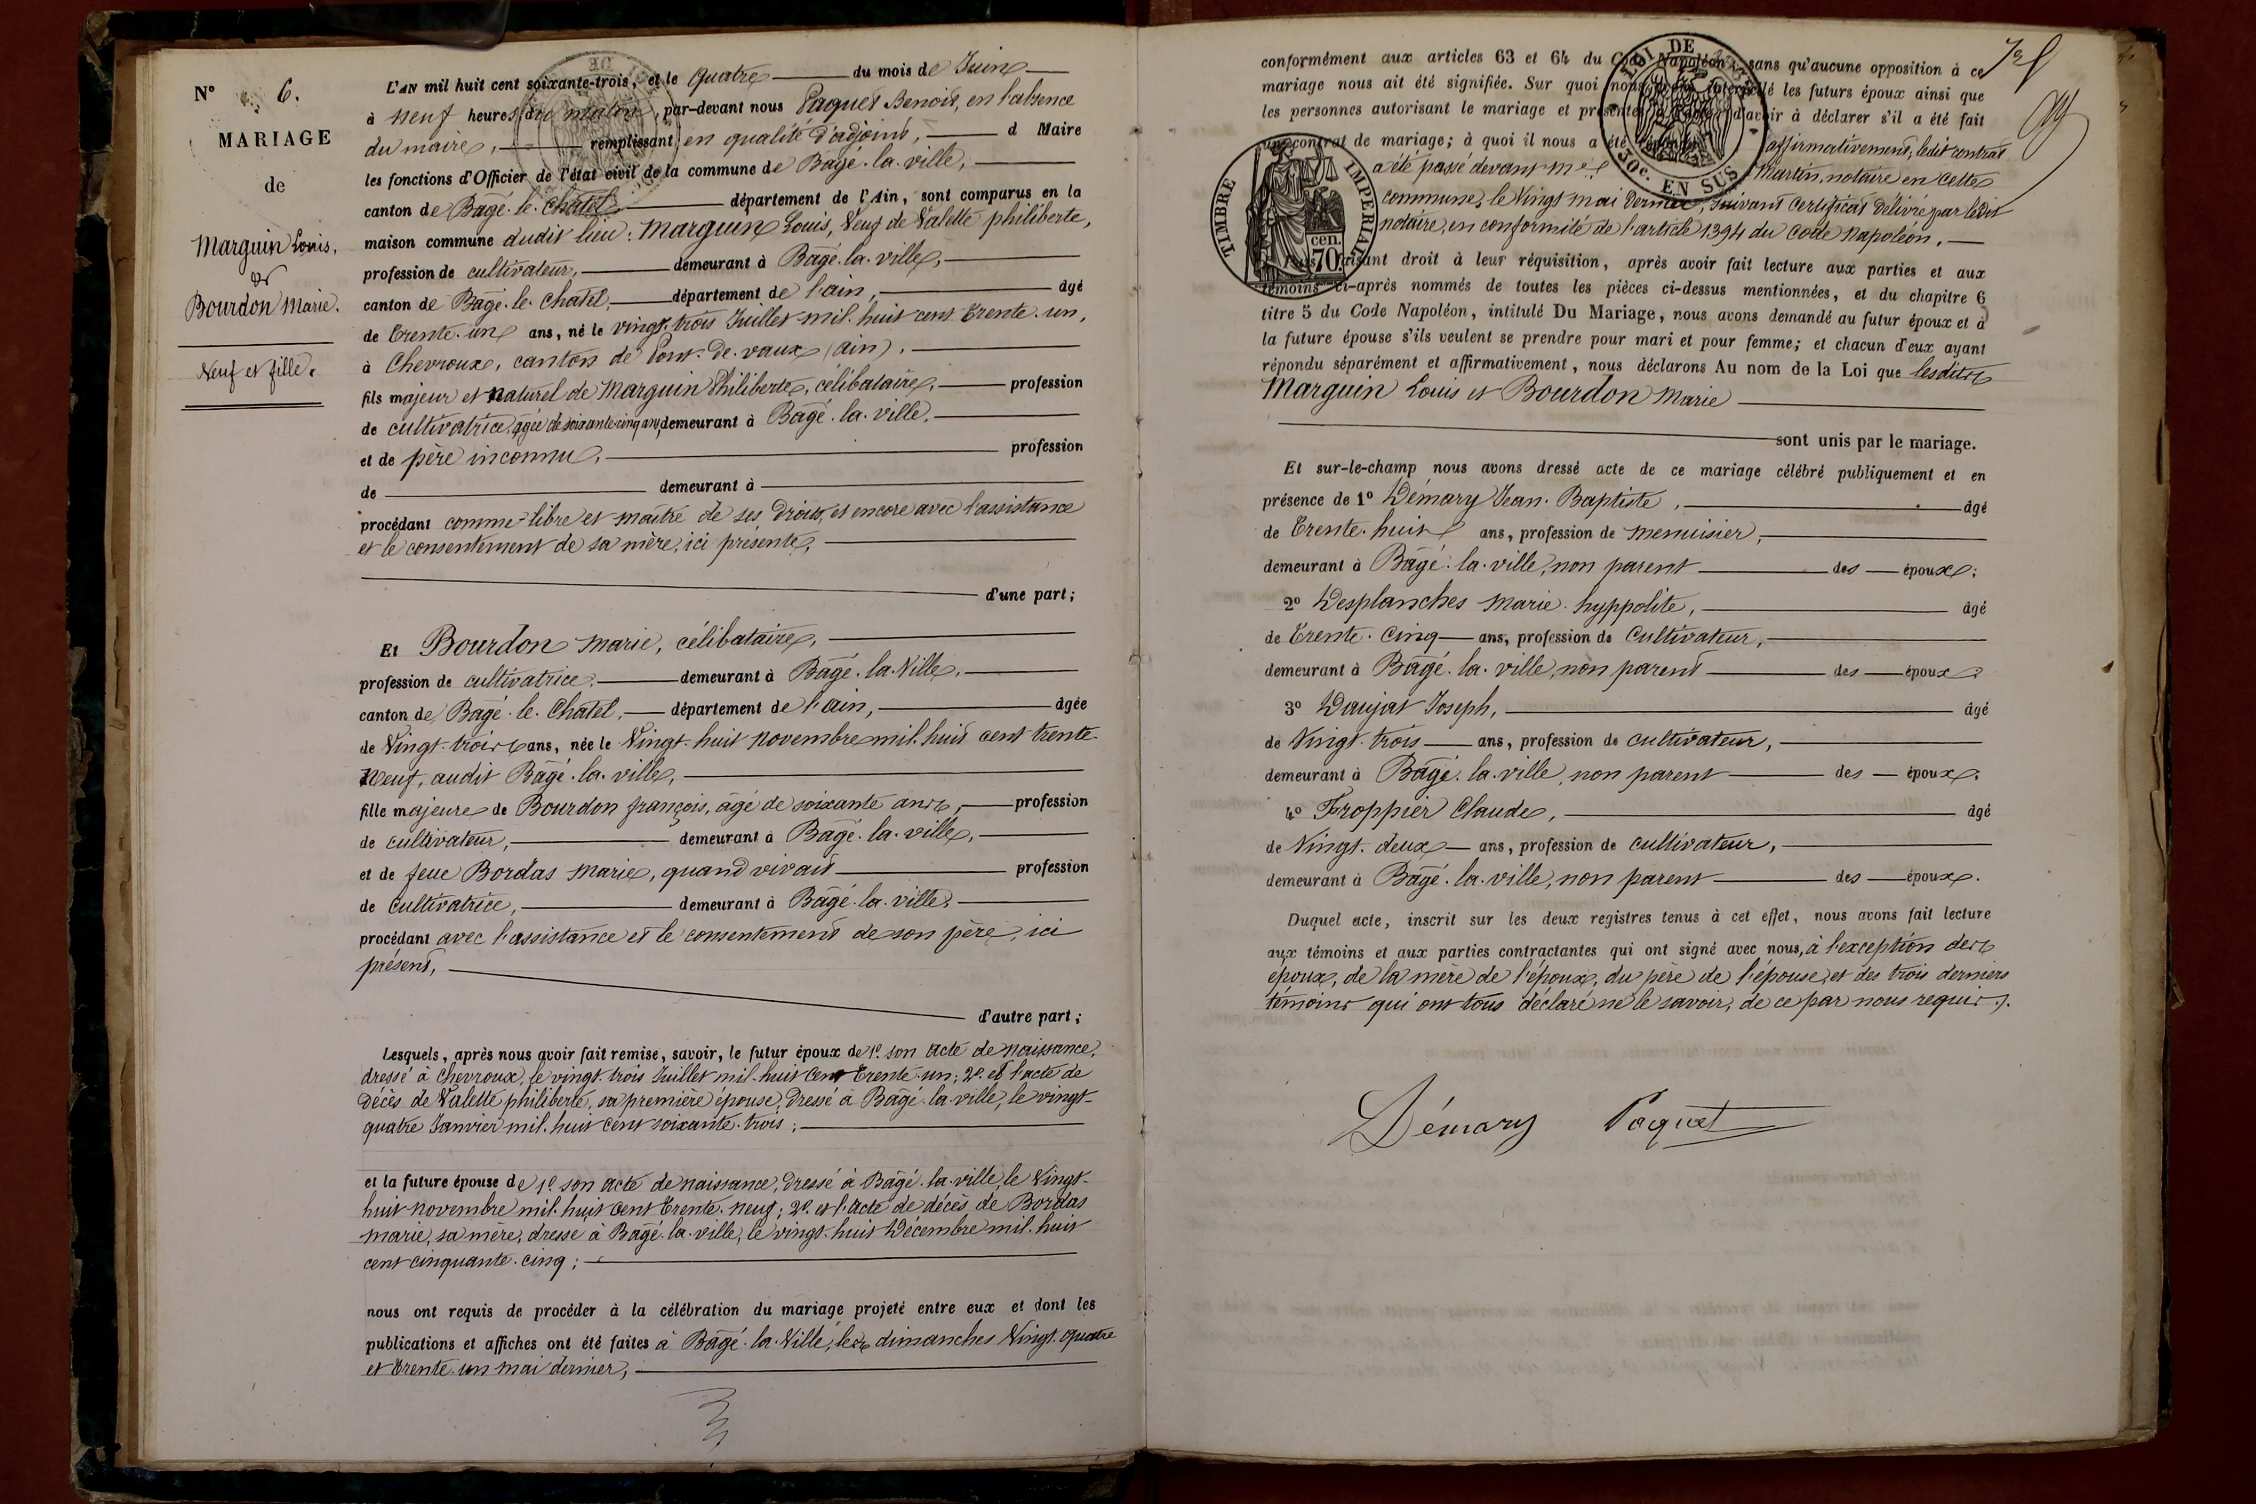 N° 6.
MARIAGE
de
Marguin Louis,
et
Bourdon Marie.
Veuf et fille.
L'AN mil huit cent soixante-trois, et le quatre du mois de Juin
à neuf heures du matin, par-devant nous Paquet Benoit, en l'absence
du maire, remplissant en qualité d'adjoint, d Maire
les fonctions d'Officier de l'état civil de la commune de Bâgé-la-ville,
canton de Bâgé-le-châtel, département de l'Ain, sont comparus en la
maison commune dudit lieu : Marguin Louis, Veuf de Valette philiberte,
profession de cultivateur, demeurant à Bâgé-la-ville,
canton de Bâgé-le-châtel, département de l'ain, âgé
de trente-un ans, né le vingt-trois Juillet mil-huit cent trente-un,
à Chevroux, canton de Pont-de-vaux (ain),
fils majeur et naturel de Marguin Philiberte, célibataire, profession
de cultivatrice, âgée de soixante-cinq ans, demeurant à Bâgé-la-ville,
et de père inconnu, profession
de demeurant à
procédant comme libre et maître de ses droits, et encore avec l'assistance
et le consentement de sa mère, ici présente,
d'une part;
Et Bourdon Marie, célibataire,
profession de cultivatrice, demeurant à Bâgé-la-Ville,
canton de Bâgé-le-Châtel, département de l'ain, âgée
de Vingt-trois ans, née le Vingt-huit novembre mil-huit cent trente-
neuf, audit Bâgé-la-ville,
fille majeure de Bourdon françois, âgé de soixante ans, profession
de cultivateur, demeurant à Bâgé-la-ville,
et de feue Bordas Marie, quand vivait profession
de cultivatrice, demeurant à Bâgé-la-ville,
procédant avec l'assistance et le consentement de son père, ici
présent,
d'autre part;
Lesquels, après nous avoir fait remise, savoir, le futur époux de 1° son acte de naissance,
dressé à Chevroux, le vingt-trois Juillet mil-huit cent trente-un; 2° et l'acte de
décès de Valette philiberte, sa première épouse, dressé à Bâgé-la-ville, le vingt-
quatre Janvier mil-huit cent soixante-trois;
et la future épouse de 1° son acte de naissance, dressé à Bâgé-la-ville, le Vingt-
huit novembre mil-huit cent trente-neuf; 2° et l'acte de décès de Bordas
Marie, sa mère, dressé à Bâgé-la-ville, le vingt-huit Décembre mil-huit
cent cinquante-cinq;
nous ont requis de procéder à la célébration du mariage projeté entre eux et dont les
publications et affiches ont été faites à Bâgé-la-Ville, les dimanches Vingt-quatre
et trente-un mai dernier,
conformément aux articles 63 et 64 du Code Napoléon, sans qu'aucune opposition à ce
mariage nous ait été signifiée. Sur quoi nous avons interpellé les futurs époux ainsi que
les personnes autorisant le mariage et présentes d'avoir à déclarer s'il a été fait
un contrat de mariage; à quoi il nous a été répondu affirmativement, ledit contrat
a été passé devant Me Martin, notaire en cette
commune, le Vingt mai dernier, suivant certificat délivré par ledit
notaire, en conformité de l'article 1394 du Code Napoléon.
TIMBRE IMPERIAL
70 cen.
LOI DE
30c. EN SUS
faisant droit à leur réquisition, après avoir fait lecture aux parties et aux
témoins ci-après nommés de toutes les pièces ci-dessus mentionnées, et du chapitre 6
titre 5 du Code Napoléon, intitulé Du Mariage, nous avons demandé au futur époux et à
la future épouse s'ils veulent se prendre pour mari et pour femme; et chacun d'eux ayant
répondu séparément et affirmativement, nous déclarons Au nom de la Loi que lesdits
Marguin Louis et Bourdon Marie
sont unis par le mariage.
Et sur-le-champ nous avons dressé acte de ce mariage célébré publiquement et en
présence de 1° Démary Jean-Baptiste, âgé
de trente-huit ans, profession de menuisier,
demeurant à Bâgé-la-ville, non parent des époux;
2° Desplanches Marie-hyppolite, âgé
de trente-cinq ans, profession de cultivateur,
demeurant à Bâgé-la-ville, non parent des époux
3° Daujat Joseph, âgé
de Vingt-trois ans, profession de cultivateur,
demeurant à Bâgé-la-ville, non parent des époux.
4° Froppier Claude, âgé
de Vingt-deux ans, profession de cultivateur,
demeurant à Bâgé-la-ville, non parent des époux.
Duquel acte, inscrit sur les deux registres tenus à cet effet, nous avons fait lecture
aux témoins et aux parties contractantes qui ont signé avec nous, à l'exception des
époux, de la mère de l'époux, du père de l'épouse, et des trois derniers
témoins qui ont tous déclaré ne le savoir, de ce par nous requis.
Démary Paquet